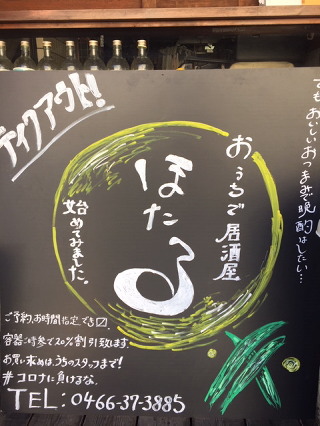 テイクアウト!
でもおいしいおつまみで晩酌はしたい…
おうちで居酒屋
ほたる
始めてみました。
ご予約、お時間指定できます。
容器ご持参で20%割引致します。
お買い求めは、うちのスタッフまで!
#コロナに負けるな。
TEL:0466-37-3885